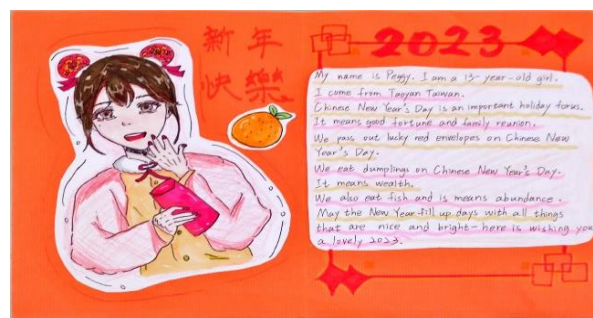 新年
快樂
2023
My name is Peggy. I am a 13-year-old girl.
I come from Taoyan Taiwan.
Chinese New Year's Day is an important holiday forus.
It means good fortune and family reunion.
We pass out lucky red envelopes on Chinese New
Year's Day.
We eat dumplings on Chinese New Year's Day.
It means wealth.
We also eat fish and is means abundance.
May the New Year fill up days with all things
that are nice and bright—here is wishing you
a lovely 2023.